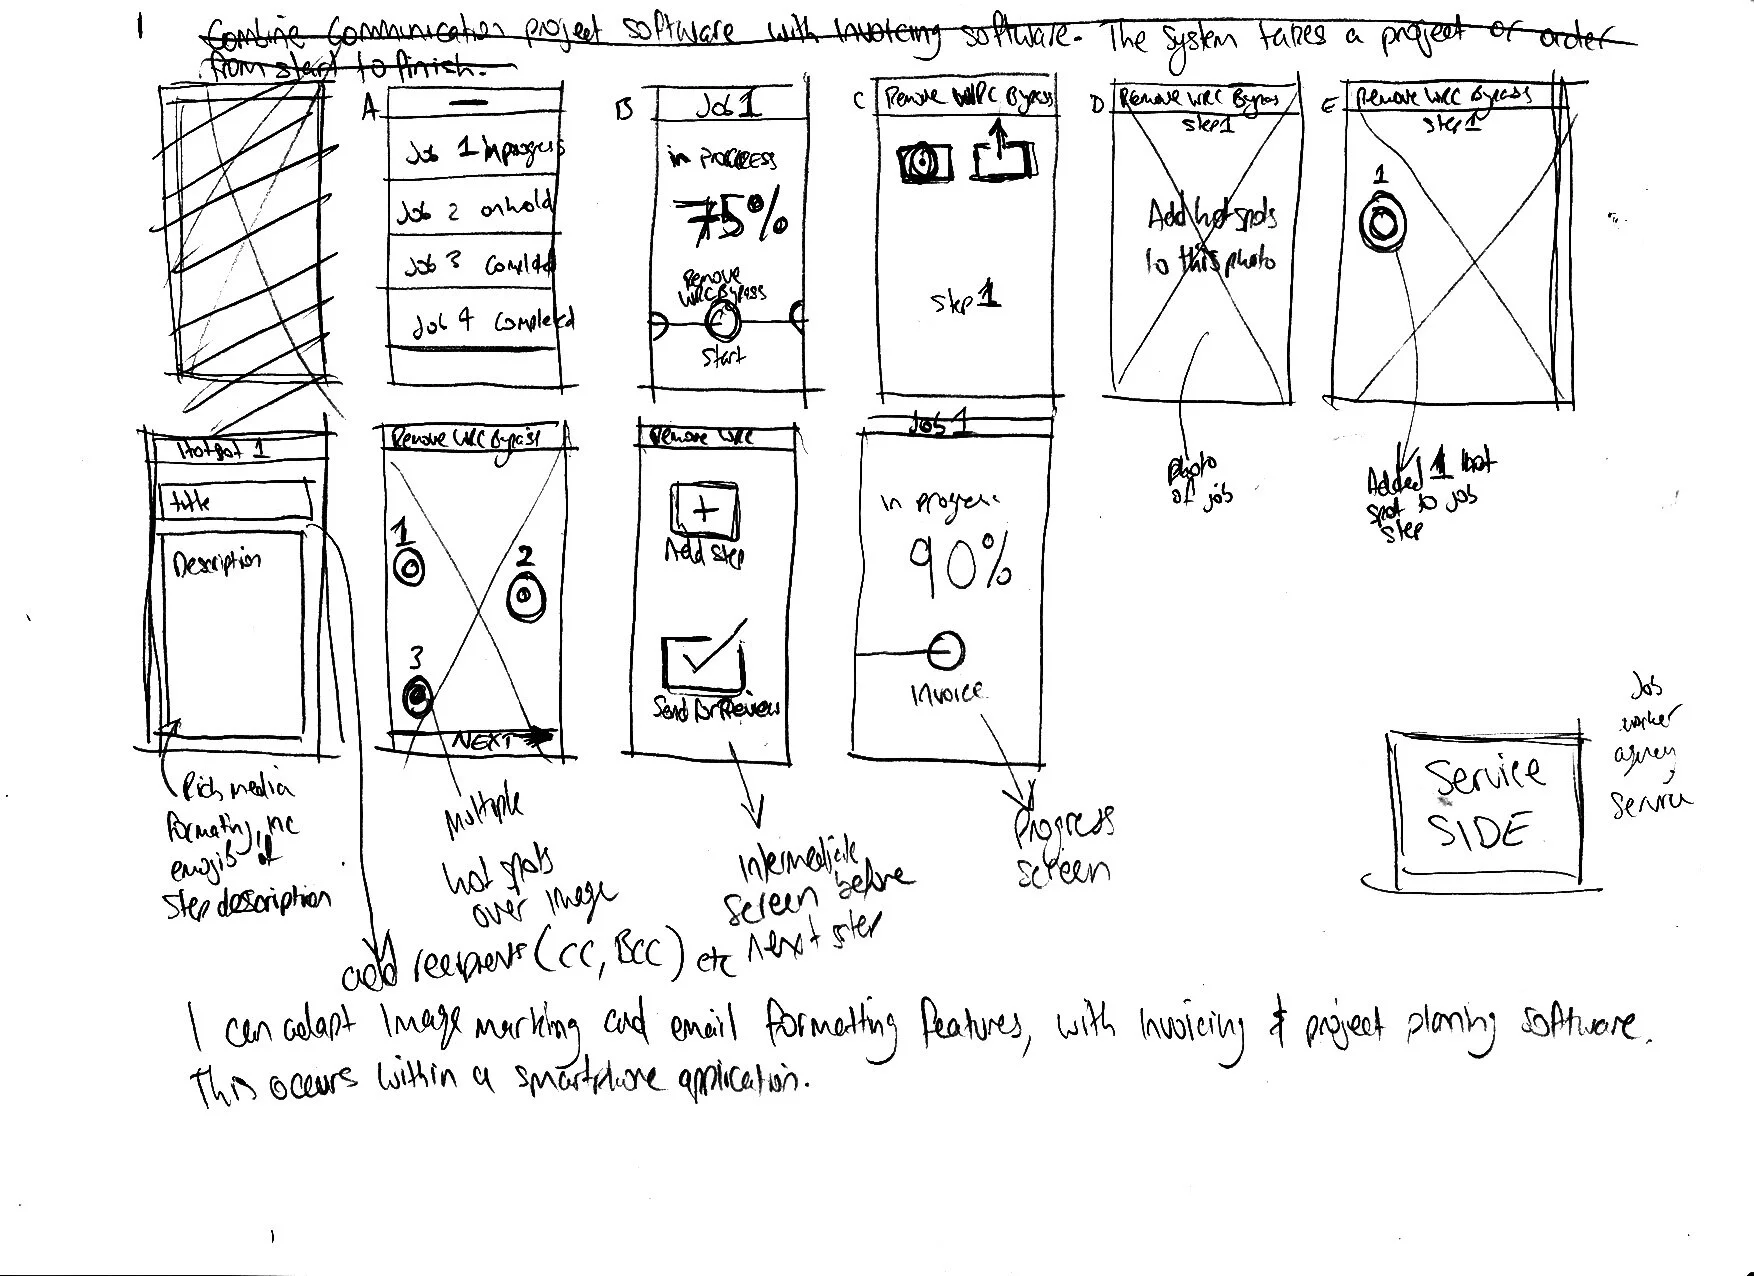 1
Combine Communication project software with Invoicing software. The System takes a project or order
from start to finish.
A
Job 1 In progress
Job 2 on hold
Job 3 Completed
Job 4 Completed
B
Job 1
in PROGRESS
75%
Remove
WRC Bypass
Start
C
Remove WRC Bypass
Step 1
D
Remove WRC Bypass
Step 1
Add hot spots
to this photo
photo
of job
E
Remove WRC Bypass
Step 1
1
Added 1 hot
spot to job
step
Hotspot 1
title
Description
Rich media
formatting, inc
emojis of
Step description
add recipients (CC, BCC) etc
Remove WRC Bypass
1
2
3
NEXT
Multiple
hot spots
over Image
Remove WRC
+
Add Step
Send for Review
Intermediate
Screen before
next step
Job 1
In progress
90%
Invoice
Progress
screen
Service
SIDE
Job
worker
agency
Service
I can adapt Image marking and email formatting features, with Invoicing & project planing software.
This occurs within a smartphone application.